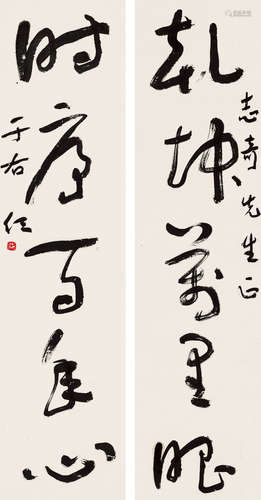 乾坤万里眼
志奇先生正
时序百年心
于右任